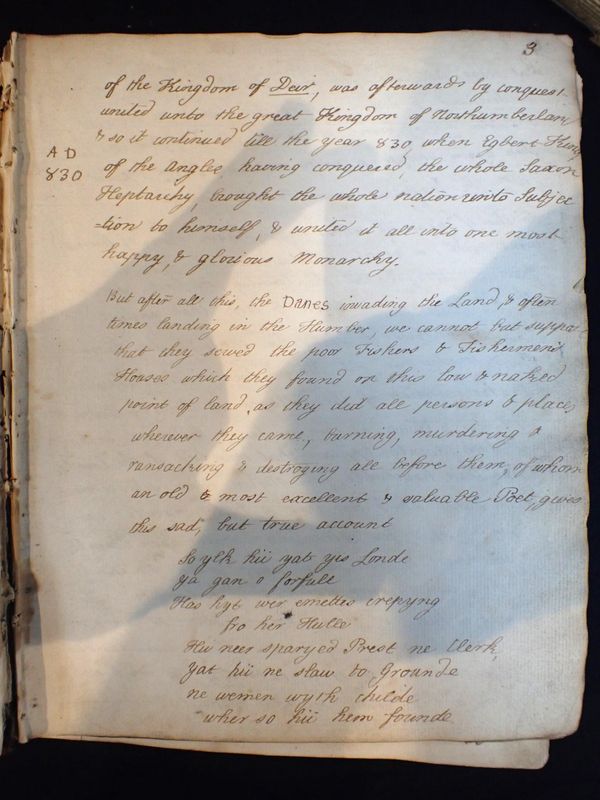 3
of the Kingdom of Deir, was afterwards by conquest
united unto the great Kingdom of Northumberland
& so it continued till the year 830, when Egbert King
A D
830
of the Angles having conquered, the whole Saxon
Heptarchy, brought the whole nation unto Subjec
=tion to himself, & united it all into one most
happy, & glorious Monarchy.
But after all this, the Danes invading the Land, & often
times landing in the Humber, we cannot but suppose
that they sewed the poor Fishers & Fishermens
Houses which they found on this low & naked
point of land, as they did all persons & places
wherever they came, burning, murdering &
ransacking & destroying all before them, of whom
an old & most excellent & valuable Poet, gives
this sad, but true account
So ylk hii yat yis Londe
ya gan o forfull
Has hyt wer emettes crepyng
fro her Hulle
Hii neer sparyed Prest ne Clerk,
yat hii ne slaw to Grounde
ne wemen wyth childe
wher so hii hem founde